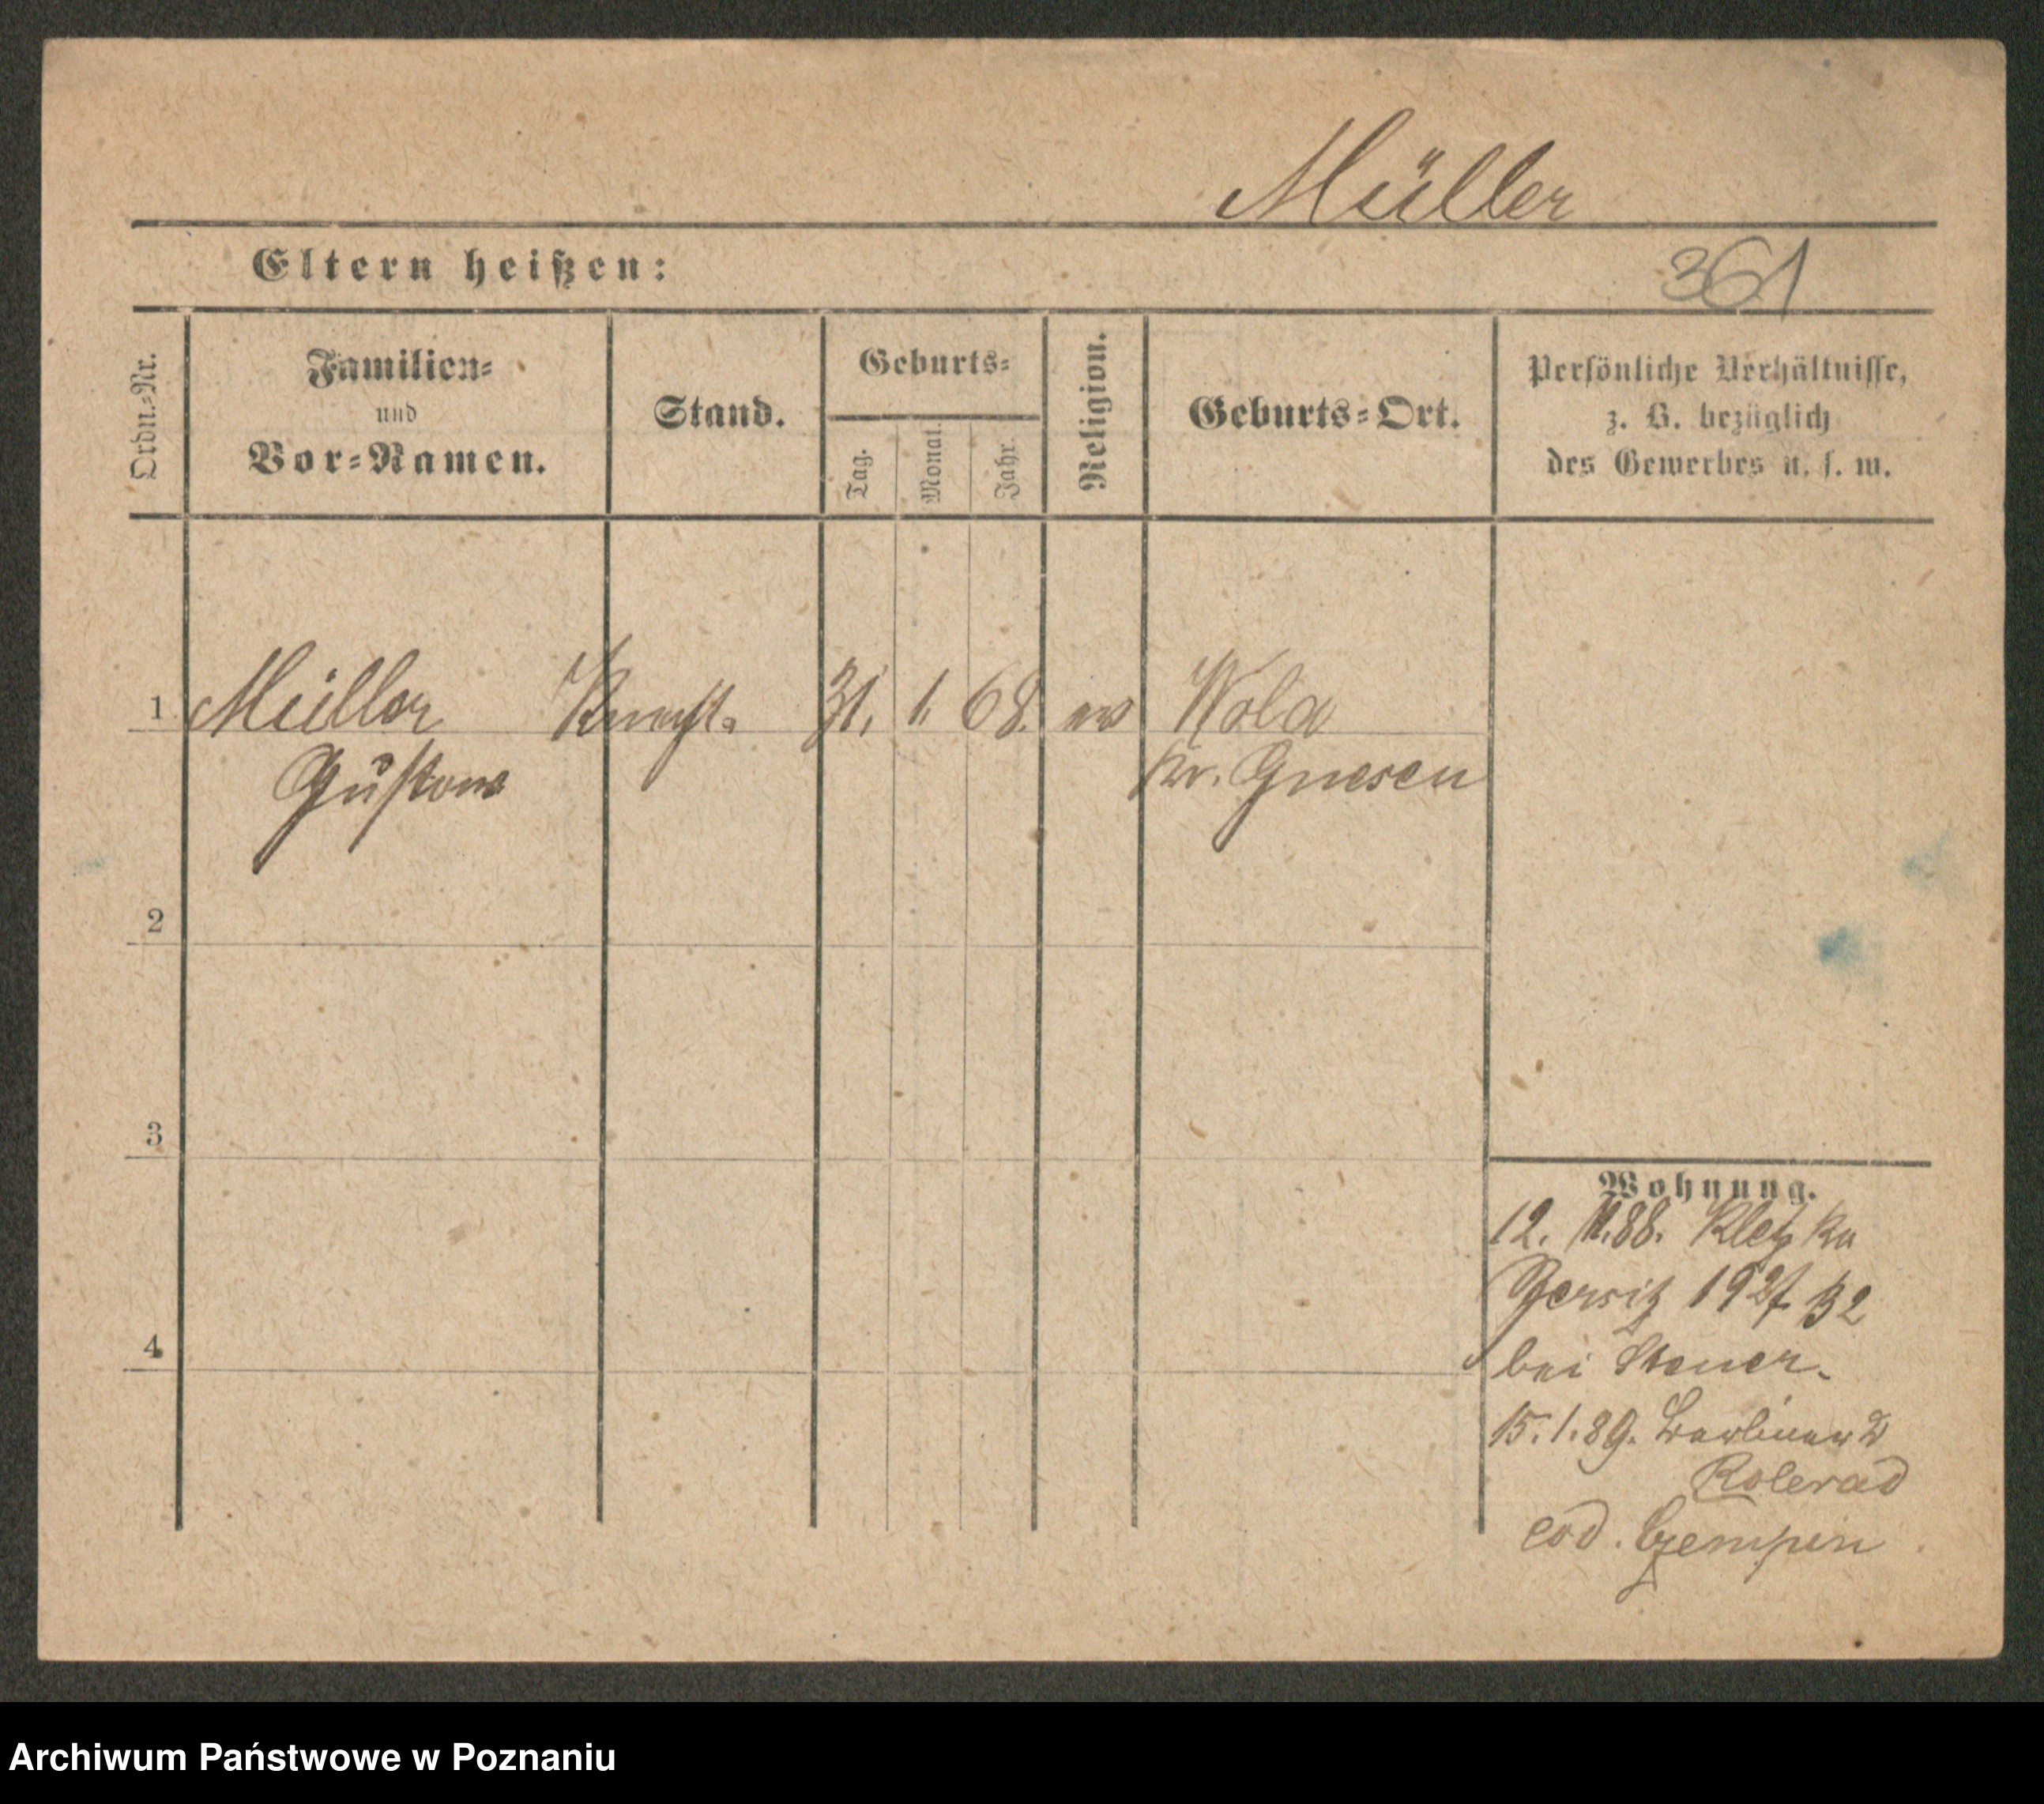 Müller
Eltern heißen:
361
Ordn.-Nr.
Familien-
und
Vor-Namen.
Stand.
Geburts-
Tag.
Monat.
Jahr.
Religion.
Geburts-Ort.
Persönliche Verhältnisse,
z. B. bezüglich
des Gewerbes u. s. w.
1 Müller Knecht. 31. 1. 68. ev Wola
Gustav Kr. Gnesen
2
3
4
Wohnung.
12. 11. 88. Kletzko
Jersitz 192
bei Steuer.
15. 1. 89. Berliner
eod. Czempin
Archiwum Państwowe w Poznaniu